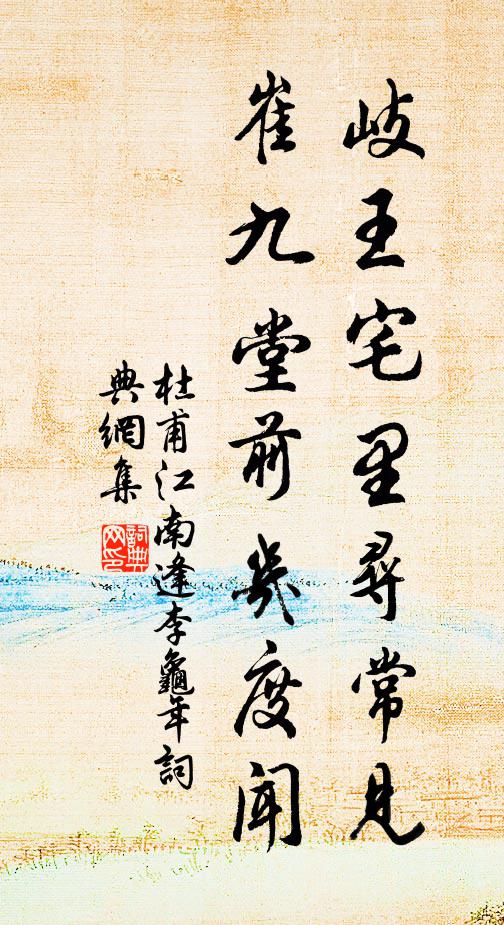 岐王宅里尋常見
崔九堂前幾度聞
杜甫江南逢李龜年詞
典網集
詞典
网印